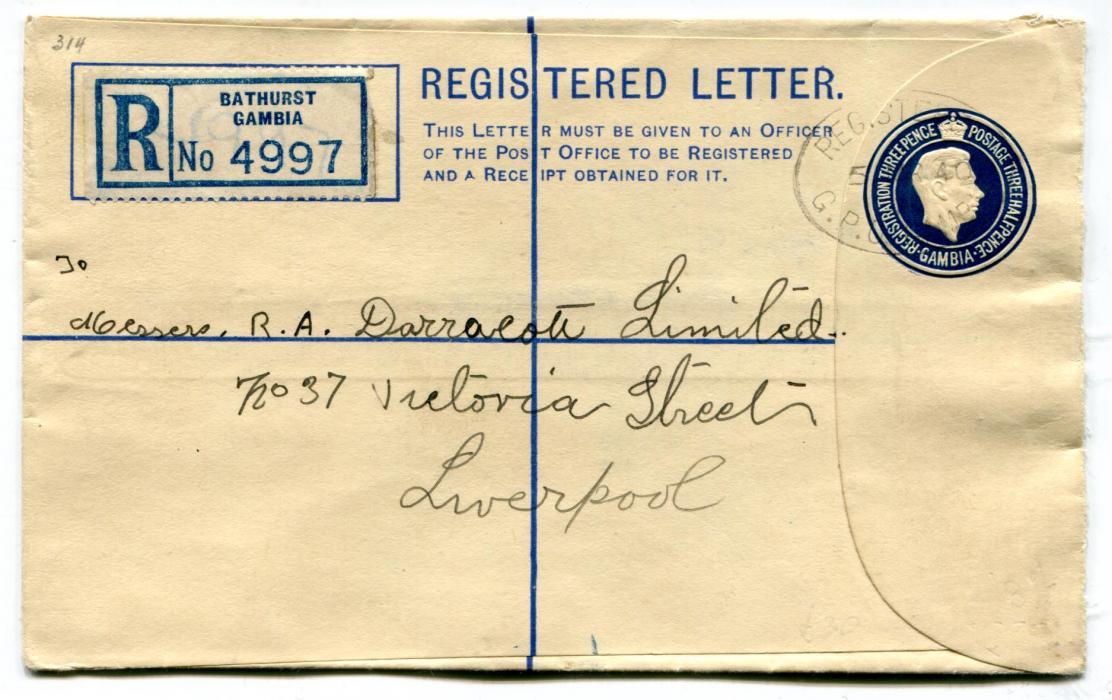 314
R
BATHURST
GAMBIA
No 4997
REGISTERED LETTER.
THIS LETTER MUST BE GIVEN TO AN OFFICER
OF THE POST OFFICE TO BE REGISTERED
AND A RECEIPT OBTAINED FOR IT.
REGISTE
40
G.P.O
REGISTRATION THREEPENCE
POSTAGE THREEHALFPENCE
GAMBIA
To
Messers. R.A. Darracott Limited.
No 37 Victoria Street
Liverpool
£30